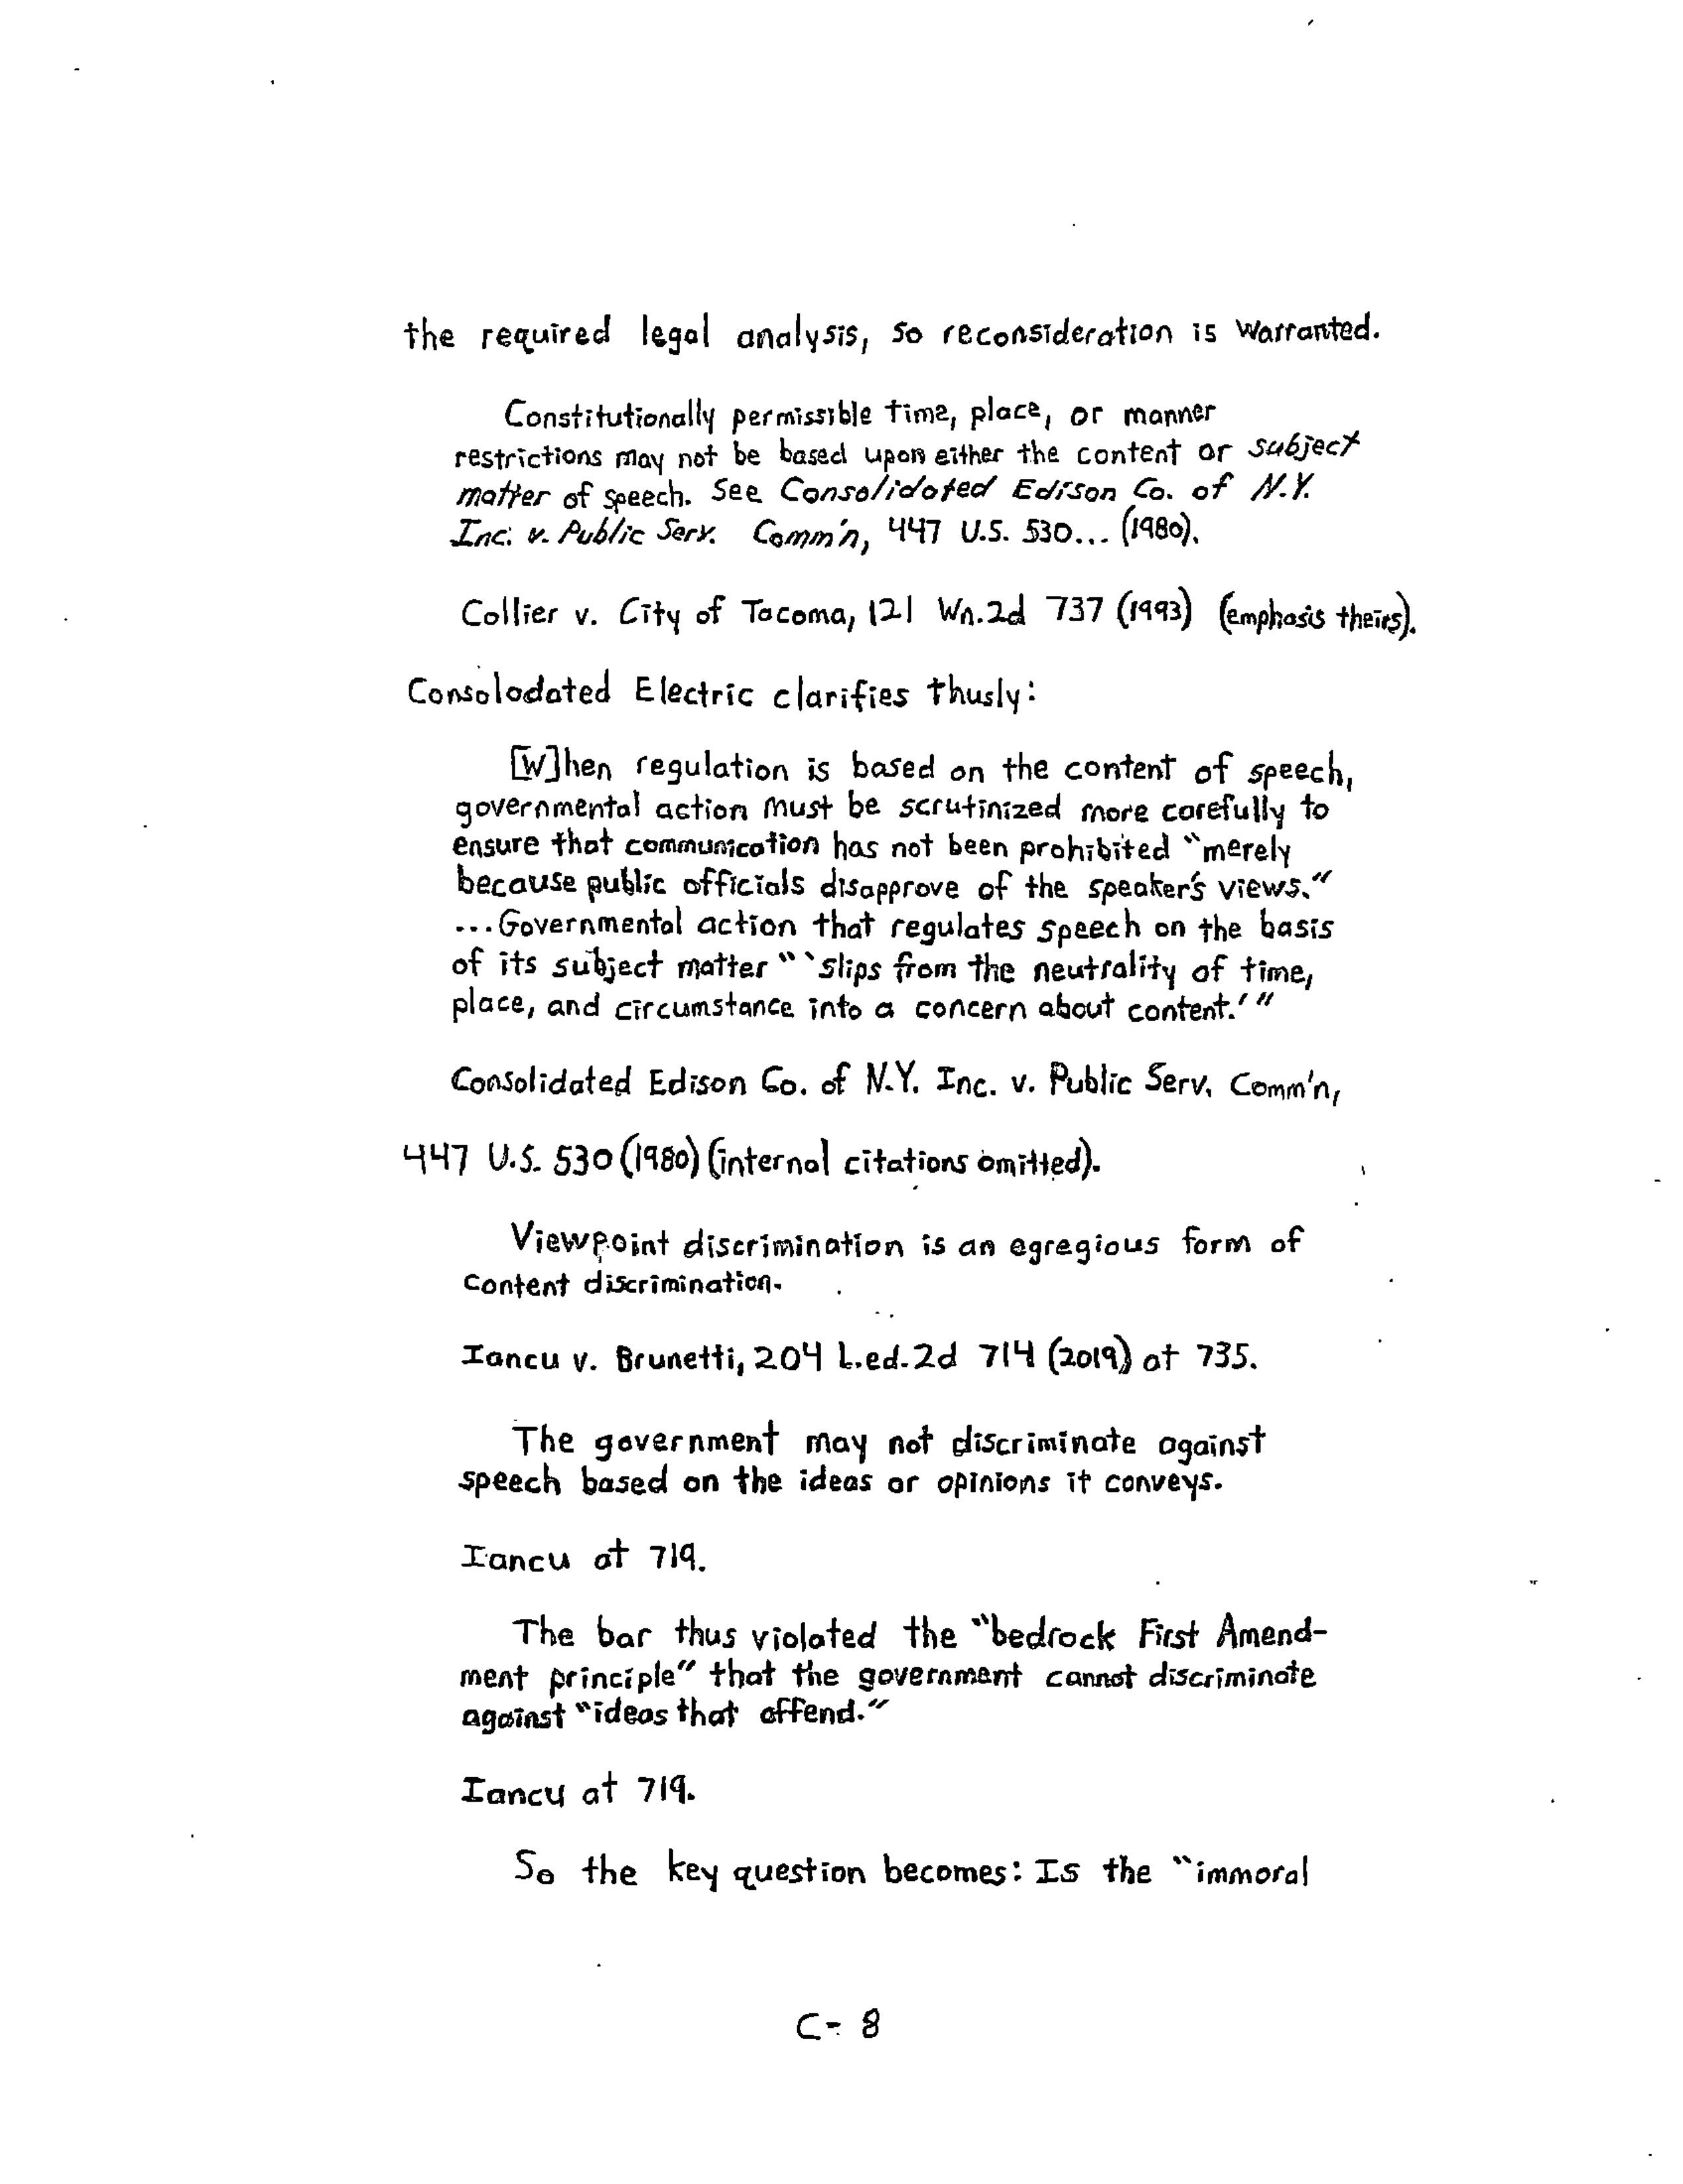 the required legal analysis, so reconsideration is warranted.
Constitutionally permissible time, place, or manner
restrictions may not be based upon either the content or subject
matter of speech. See Consolidated Edison Co. of N.Y.
Inc. v. Public Serv. Comm'n, 447 U.S. 530... (1980).
Collier v. City of Tacoma, 121 Wn.2d 737 (1993) (emphasis theirs).
Consolodated Electric clarifies thusly:
[W]hen regulation is based on the content of speech,
governmental action must be scrutinized more carefully to
ensure that communication has not been prohibited "merely
because public officials disapprove of the speaker's views."
...Governmental action that regulates speech on the basis
of its subject matter "`slips from the neutrality of time,
place, and circumstance into a concern about content.'"
Consolidated Edison Co. of N.Y. Inc. v. Public Serv. Comm'n,
447 U.S. 530 (1980) (internal citations omitted).
Viewpoint discrimination is an egregious form of
content discrimination.
Iancu v. Brunetti, 204 L.ed.2d 714 (2019) at 735.
The government may not discriminate against
speech based on the ideas or opinions it conveys.
Iancu at 719.
The bar thus violated the "bedrock First Amend-
ment principle" that the government cannot discriminate
against "ideas that offend."
Iancu at 719.
So the key question becomes: Is the "immoral
C- 8